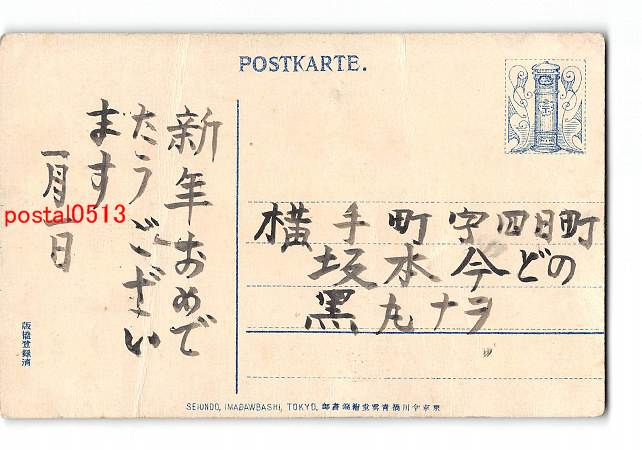 POSTKARTE.
新年おめで
たうござい
ます
一月一日
postal0513
横手町字四日町
坂本今どの
黒丸ナヲ
版権登録済
SEIUNDO, IMAGAWBASHI, TOKYO.
東京今川橋青雲堂絵端書部